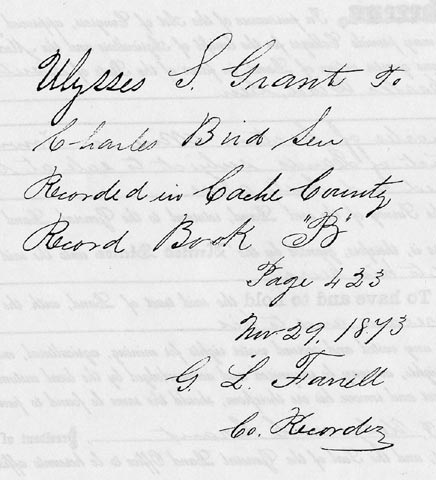 Ulysses S. Grant To
Charles Bird Sen
Recorded in Cache County
Record Book "B"
Page 423
Nov 29, 1873
G. L. Farrell
Co. Recorder